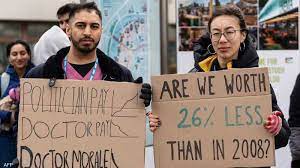 POLITICIAN PAY
DOCTOR PAY
DOCTOR MORALE
ARE WE WORTH
26% LESS
THAN IN 2008?
AFP